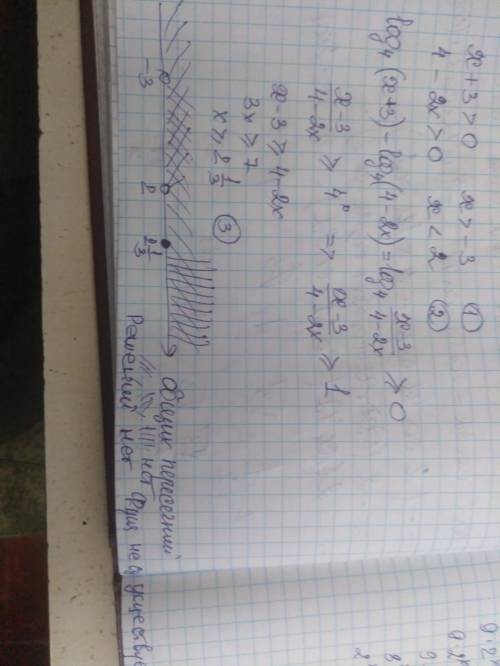 x+3>0 x>-3 ①
4-2x>0 x<2 ②
log₄(x+3)-log₄(4-2x)=log₄ (x-3)/(4-2x) ≥ 0
(x-3)/(4-2x) ≥ 4⁰ => (x-3)/(4-2x) ≥ 1
x-3 ≥ 4-2x
3x ≥ 7
x ≥ 2 1/3 ③
-3 2 2 1/3
Общих пересечний
нет
Решений нет